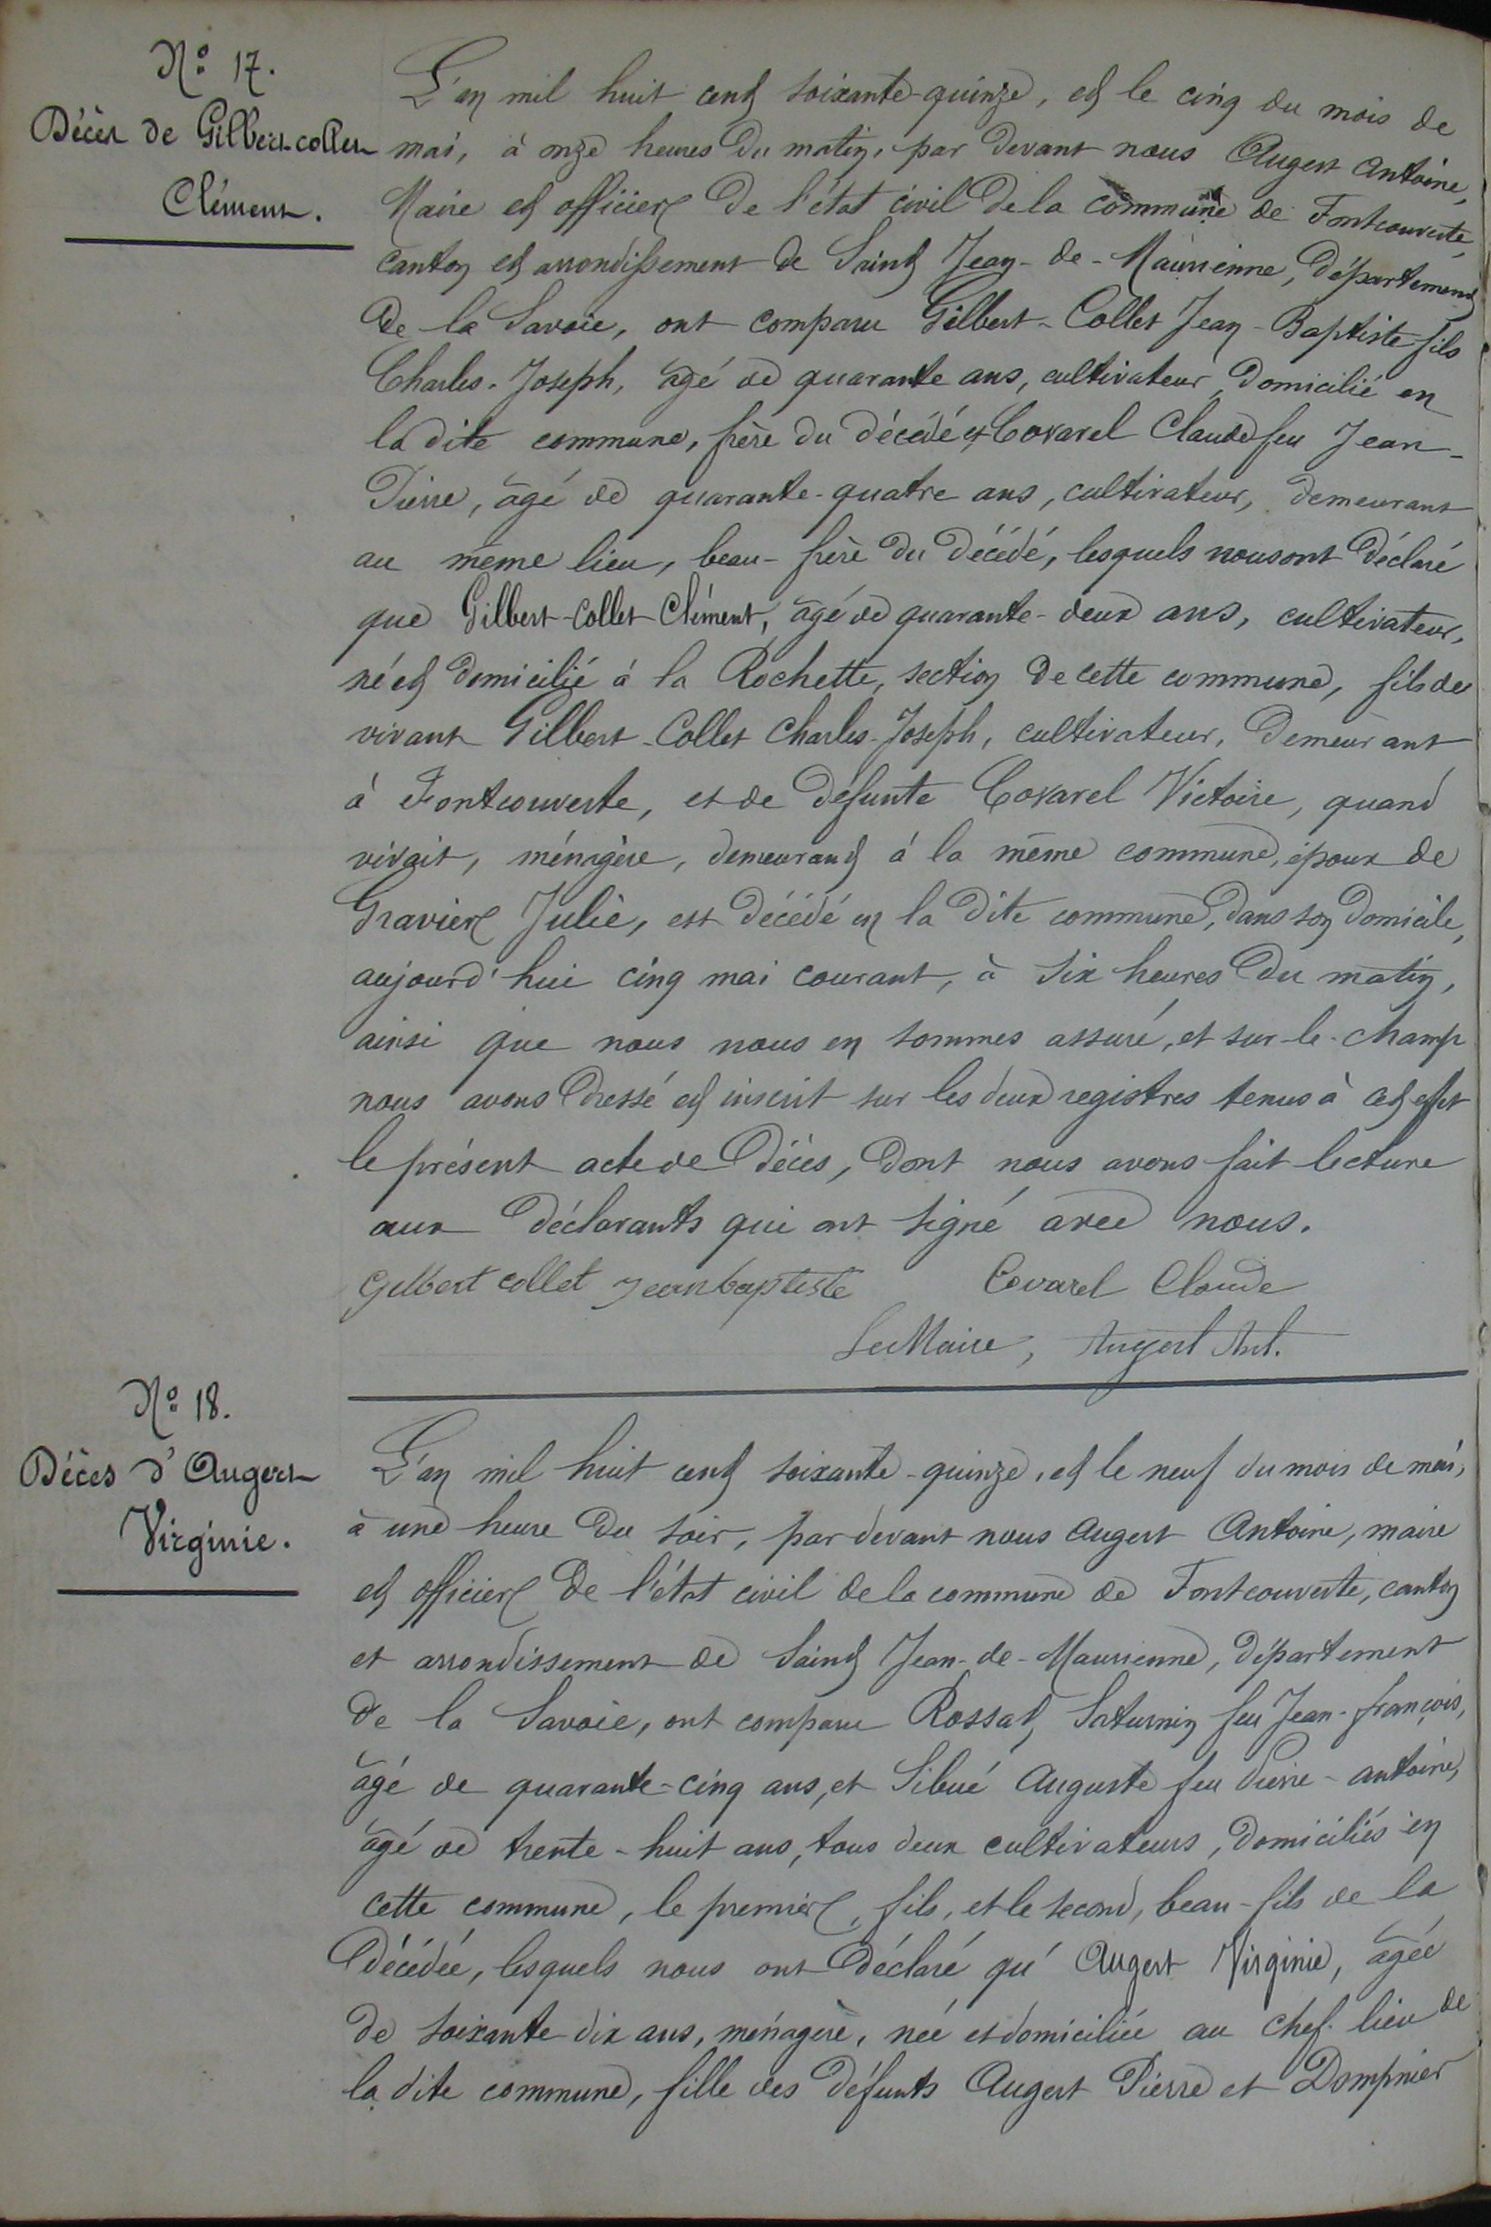 N° 17.
Décès de Gilbert-collet
Clément.
L'an mil huit cent soixante-quinze, et le cinq du mois de
mai, à onze heures du matin, par devant nous Augert Antoine,
Maire et officier de l'état civil de la commune de Fontcouverte,
canton et arrondissement de Saint Jean-de-Maurienne, département
de la Savoie, ont comparu Gilbert-Collet Jean-Baptiste fils
Charles-Joseph, âgé de quarante ans, cultivateur, domicilié en
la dite commune, frère du décédé et Covarel Claude feu Jean-
Pierre, âgé de quarante-quatre ans, cultivateur, demeurant
au même lieu, beau-frère du décédé, lesquels nous ont déclaré
que Gilbert-Collet Clément, âgé de quarante-deux ans, cultivateur,
né et domicilié à la Rochette, section de cette commune, fils de
vivant Gilbert-Collet Charles-Joseph, cultivateur, demeurant
à Fontcouverte, et de défunte Covarel Victoire, quand
vivait, ménagère, demeurant à la même commune, époux de
Gravier Julie, est décédé en la dite commune, dans son domicile,
aujourd'hui cinq mai courant, à six heures du matin,
ainsi que nous nous en sommes assuré, et sur-le-champ
nous avons dressé et inscrit sur les deux registres tenus à cet effet
le présent acte de décès, dont nous avons fait lecture
aux déclarants qui ont signé avec nous.
Gilbert collet Jean baptiste Covarel Claude
Le Maire, Augert Ant.
N° 18.
Décès d'Augert
Virginie.
L'an mil huit cent soixante-quinze, et le neuf du mois de mai,
à une heure du soir, par devant nous Augert Antoine, maire
et officier de l'état civil de la commune de Fontcouverte, canton
et arrondissement de Saint Jean-de-Maurienne, département
de la Savoie, ont comparu Rossat Saturnin feu Jean-françois,
âgé de quarante-cinq ans, et Sibué Auguste feu Pierre-antoine,
âgé de trente-huit ans, tous deux cultivateurs, domiciliés en
cette commune, le premier, fils, et le second, beau-fils de la
décédée, lesquels nous ont déclaré qu'Augert Virginie, âgée
de soixante dix ans, ménagère, née et domiciliée au chef-lieu de
la dite commune, fille des défunts Augert Pierre et Dompnier